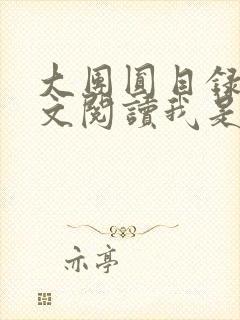 大團圓目錄
文閱讀我是
亦亭